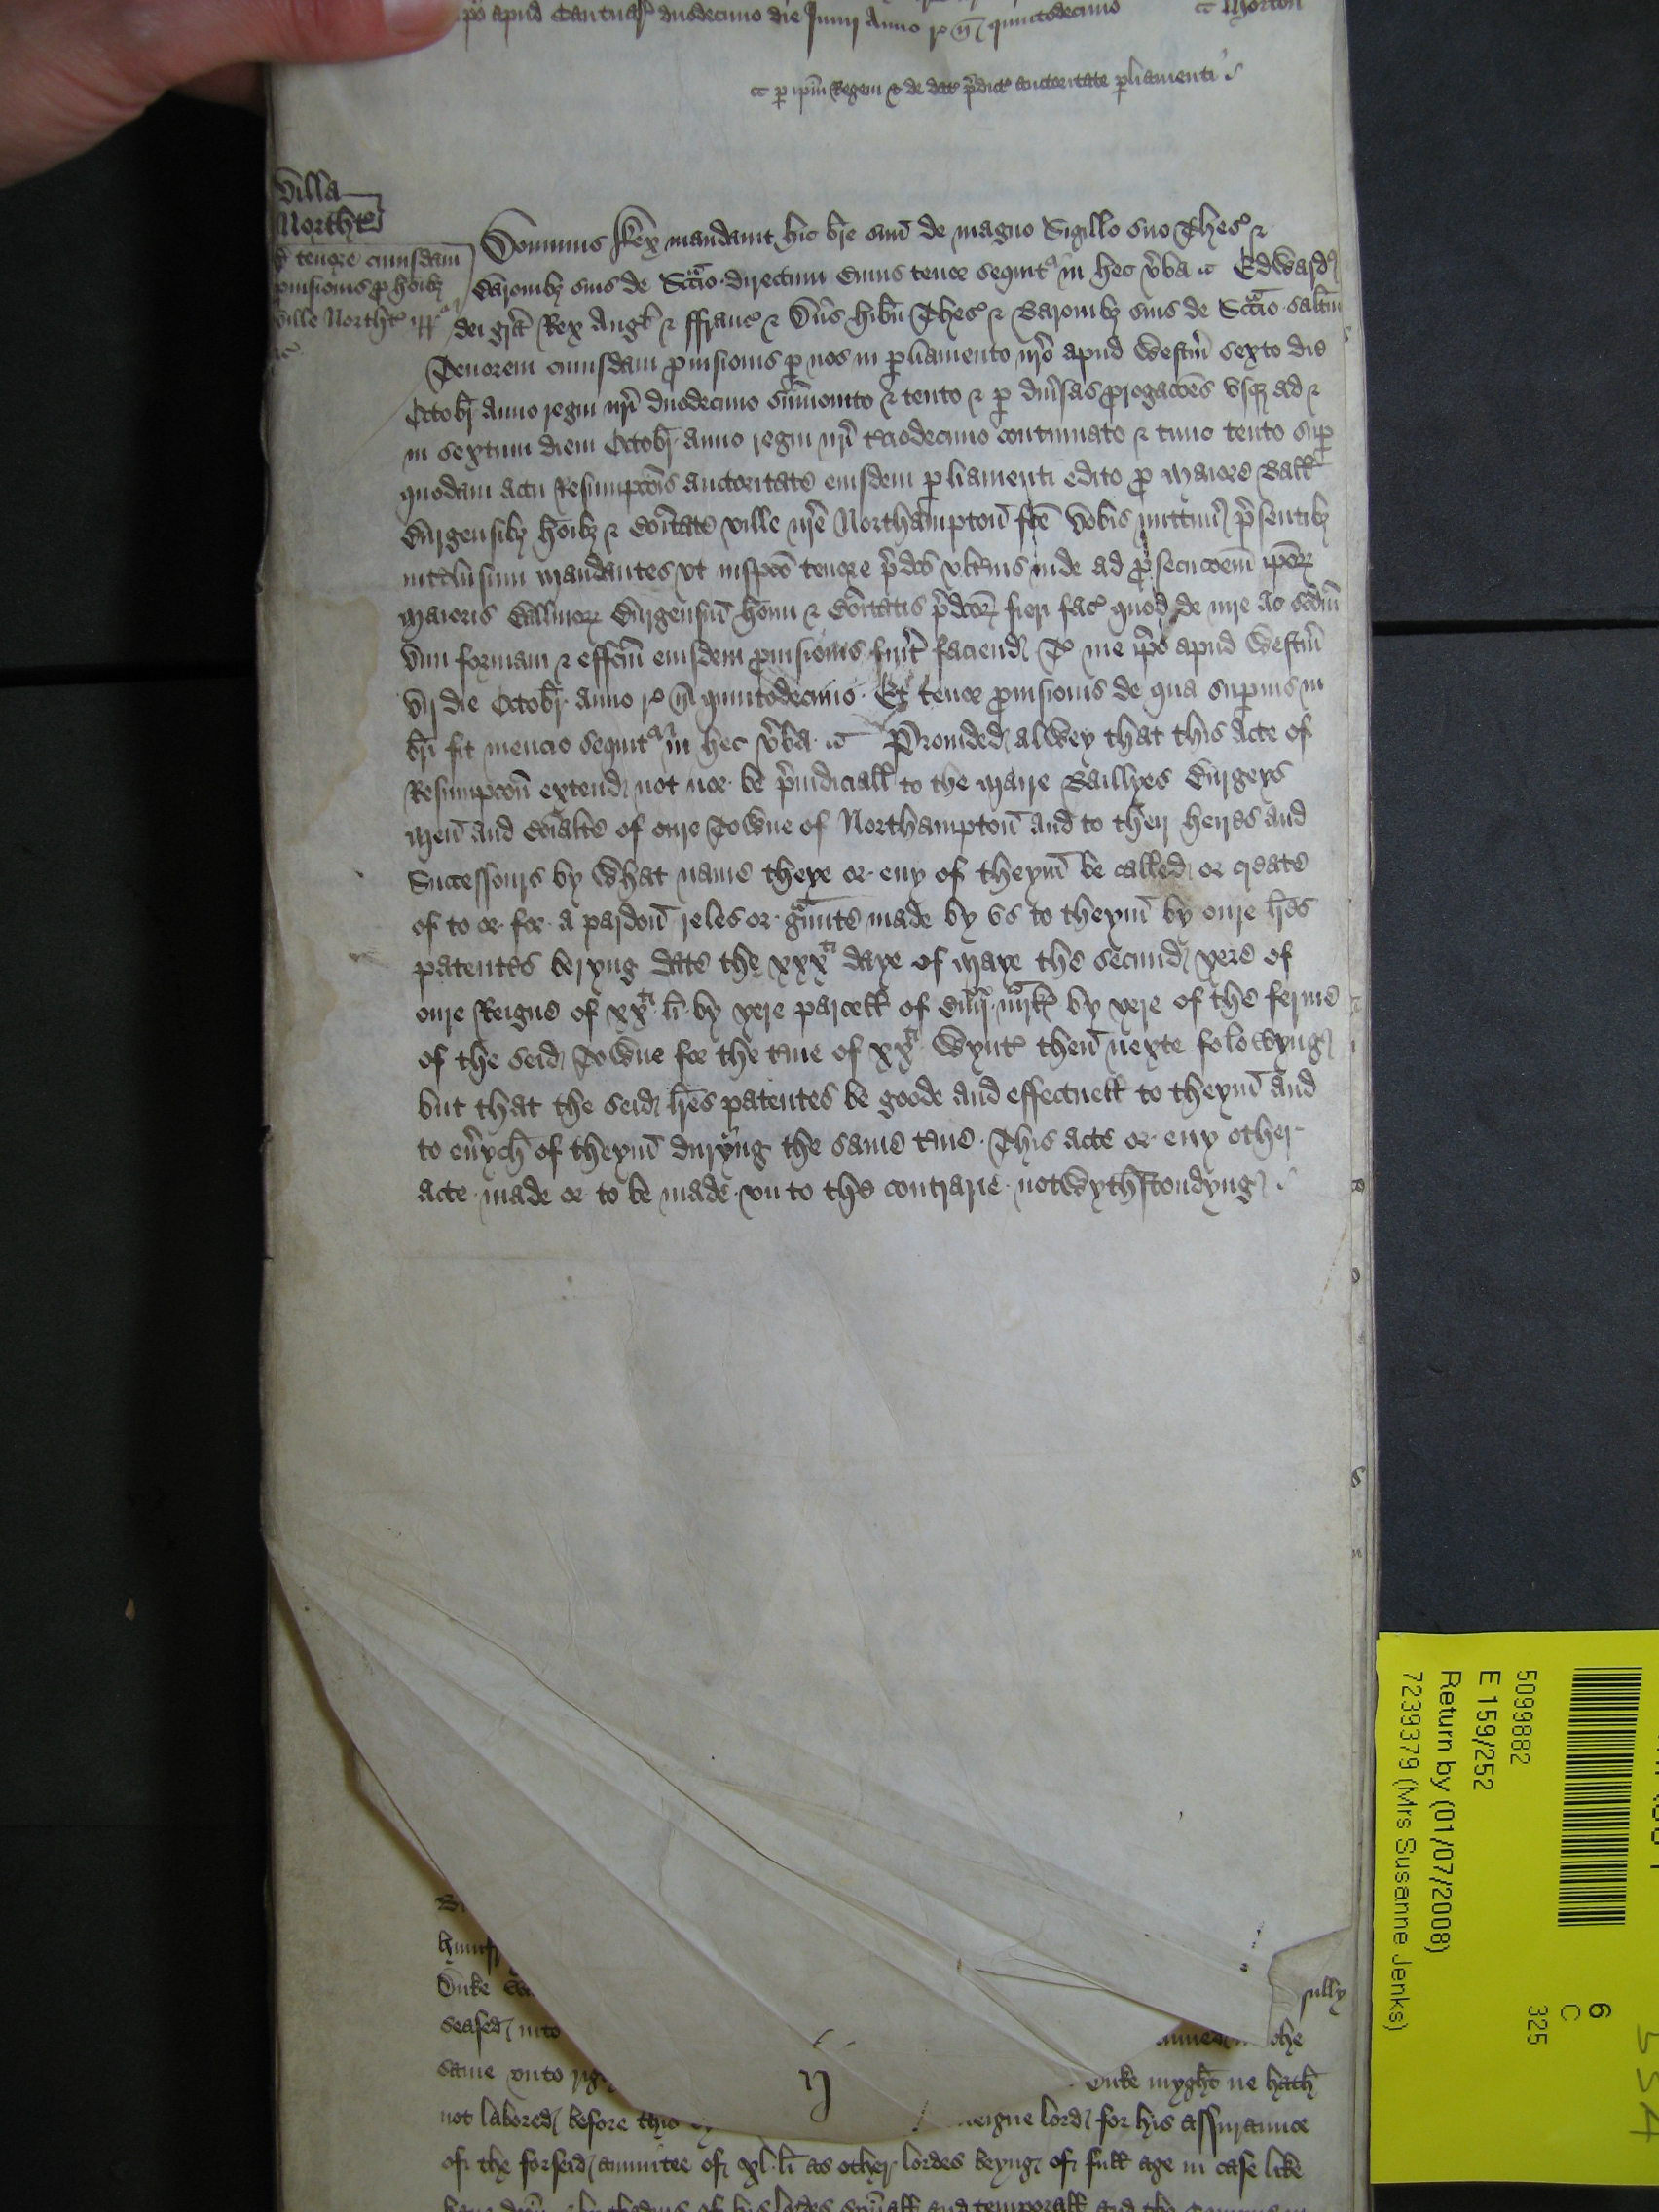 apud Cantuar duodecimo die Junij Anno r n quintodecimo cc Morton
cc p ipm Regem & de dat pdict auctoritate parliamenti
Villa
Northt
d tenore cuiusdam
prouisionis p hoibz
ville Northt irr
Dominus Rex mandauit hic bre suu de magno Sigillo suo Thes &
Baronibz suis de Sccio directum Cuius tenor sequit in hec vba cc Edward
dei gra Rex Angl & ffranc & Dns hibn Thes & Baronibz suis de Sccio saltm
Tenorem cuiusdam prouisionis p nos in parliamento nro apud Westm sexto die
Octobr anno regni nri duodecimo sumonito & tento & p diusas progacoes vsqz ad &
in sextum diem Octobr anno regni nri tciodecimo continuato & tunc tento sup
quodam actu Resumpcois auctoritate eiusdem parliamenti edito pro Maiore Ball
Burgensibz hoibz & coitate ville nre Northampton fce vobis mittim psentibz
interclusum mandantes vt inspco tenore pdco vltius inde ad prosecucoem ipor
Maioris Balliuor Burgensiu homi & Coitatis pdcor fieri fac quod de iure ac scdm
vim formam & effcm eiusdem prouisionis fuit faciend T me ipo apud Westm
vij die Octobr anno r n quintodecimo Et tenor prouisionis de qua supius in
bri fit mencio sequit in hec vba cc Prouided alwey that this Acte of
Resumpcon extend not nor be piudiciall to the Maire Baillyes Burgeys
Men and Coialte of oure Towne of Northampton and to their heires and
Successours by what name theye or eny of theym be called or create
of to or for a pardon reles or graunte made by vs to theym by oure lres
patentes beryng date the xxxti daye of Maye the secund yere of
oure Reigne of xxti li by yere parcell of mrk by yere of the ferme
of the seid Towne for the tme of xxti Wynt then nexte folowyng
but that the seid lres patentes be goode and effectuell to theym and
to euych of theym duryng the same tme This acte or eny other
acte made or to be made vn to the contrarie notwythstondyng
Duke
sully
seased into
the
same vnto
Duke myght ne hath
ij
not labored before this
eigne lord for his assuraunce
of the forseid annuitee of xl li as other lordes beyng of full age in case like
5099882
E 159/252
Return by (01/07/2008)
7239379 (Mrs Susanne Jenks)
6
C
325